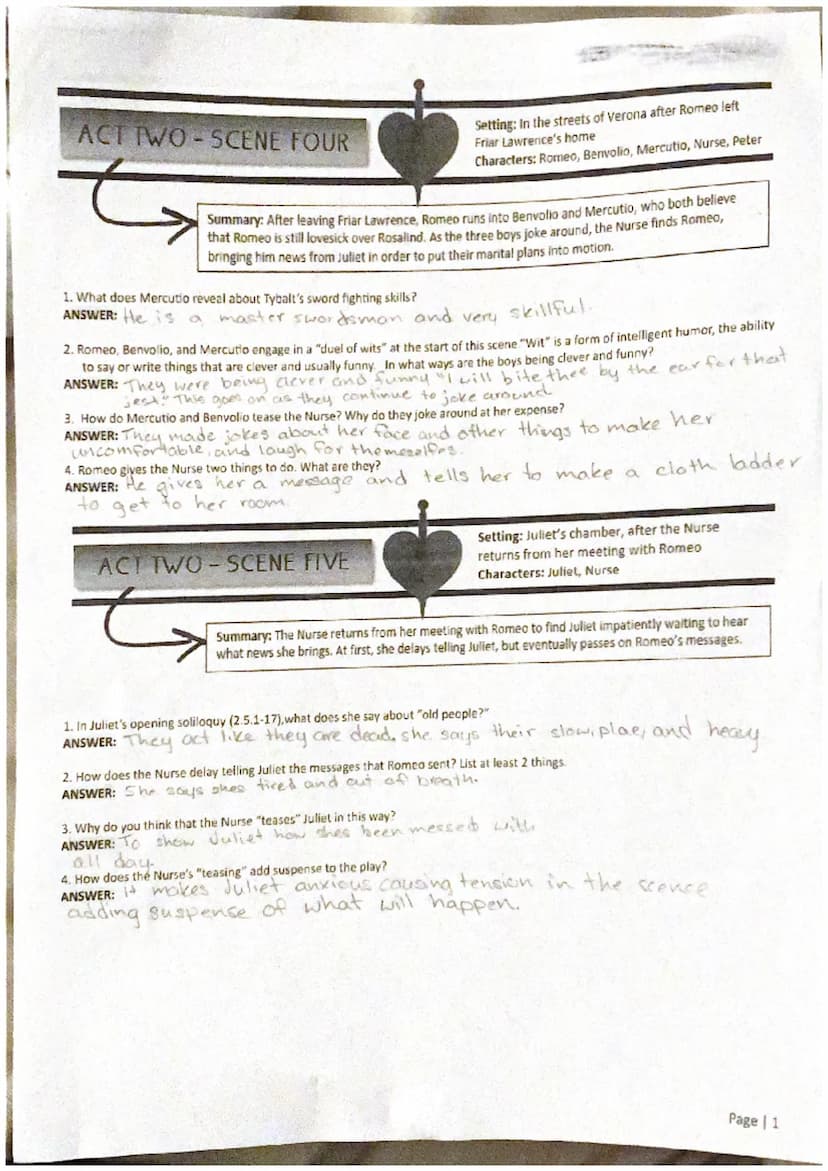 ACT TWO - SCENE FOUR
Setting: In the streets of Verona after Romeo left
Friar Lawrence's home
Characters: Romeo, Benvolio, Mercutio, Nurse, Peter
Summary: After leaving Friar Lawrence, Romeo runs into Benvolio and Mercutio, who both believe
that Romeo is still lovesick over Rosalind. As the three boys joke around, the Nurse finds Romeo,
bringing him news from Juliet in order to put their marital plans into motion.
1. What does Mercutio reveal about Tybalt's sword fighting skills?
ANSWER: He is a master swordsman and very skillful.
2. Romeo, Benvolio, and Mercutio engage in a "duel of wits" at the start of this scene "Wit" is a form of intelligent humor, the ability
to say or write things that are clever and usually funny. In what ways are the boys being clever and funny?
ANSWER: They were being clever and funny "I will bite thee by the ear for that
jest." This goes on as they continue to joke around.
3. How do Mercutio and Benvolio tease the Nurse? Why do they joke around at her expense?
ANSWER: They made jokes about her face and other things to make her
uncomfortable, and laugh for themeselfes.
4. Romeo gives the Nurse two things to do. What are they?
ANSWER: He gives her a message and tells her to make a cloth ladder
to get to her room.
ACT TWO - SCENE FIVE
Setting: Juliet's chamber, after the Nurse
returns from her meeting with Romeo
Characters: Juliet, Nurse
Summary: The Nurse returns from her meeting with Romeo to find Juliet impatiently waiting to hear
what news she brings. At first, she delays telling Juliet, but eventually passes on Romeo's messages.
1. In Juliet's opening soliloquy (2.5.1-17),what does she say about "old people?"
ANSWER: They act like they are dead, she says their slow, plae, and heavy
2. How does the Nurse delay telling Juliet the messages that Romeo sent? List at least 2 things.
ANSWER: She says shes tired and out of breath.
3. Why do you think that the Nurse "teases" Juliet in this way?
ANSWER: To show Juliet how shes been messed with
all day.
4. How does the Nurse's "teasing" add suspense to the play?
ANSWER: it makes Juliet anxious causing tension in the scence
adding suspense of what will happen.
Page | 1